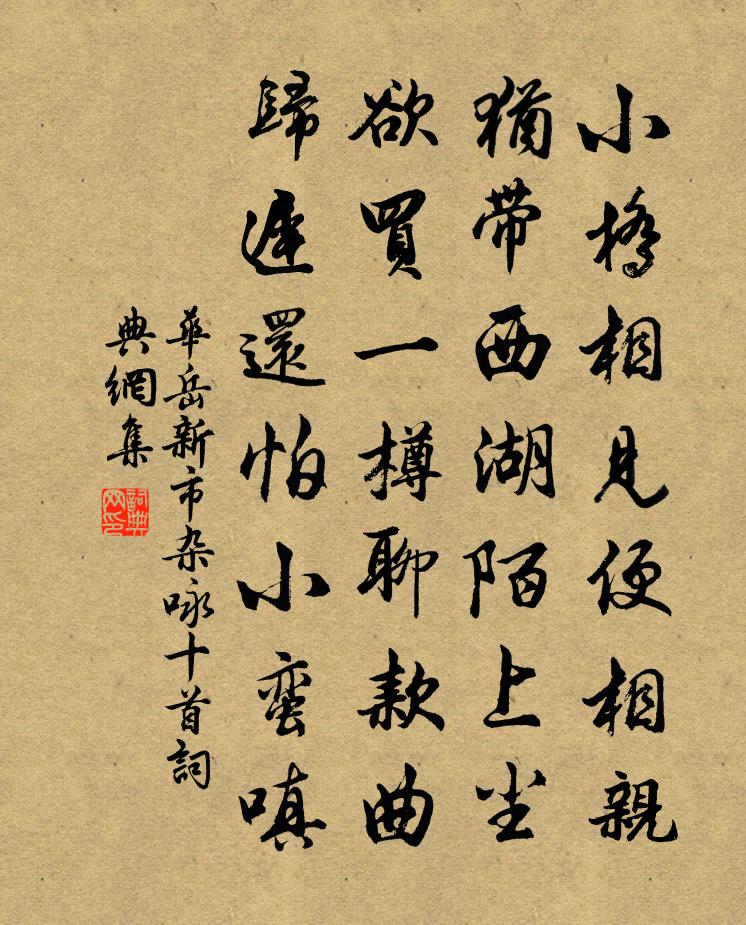 小橋相見便相親
猶带西湖陌上尘
欲買一樽聊款曲
歸遲還怕小蛮嗔
華岳新市杂咏十首詞
典網集
詞典
网印